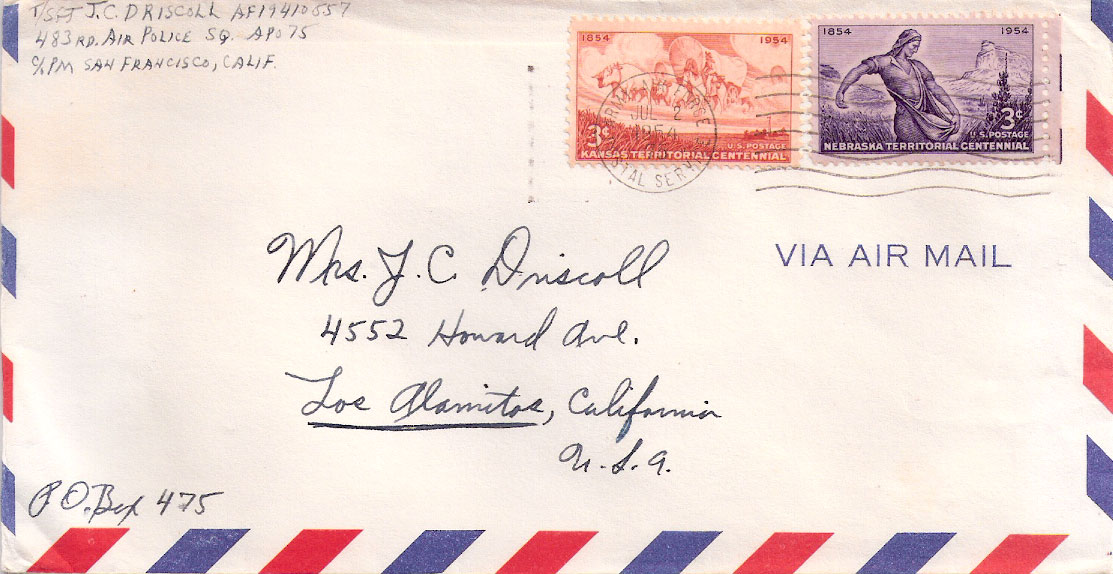 T/SGT J.C. DRISCOLL AF19410557
483RD. AIR POLICE SQ. APO 75
C/O PM SAN FRANCISCO, CALIF.
1854 1954
3¢
U.S. POSTAGE
KANSAS TERRITORIAL CENTENNIAL
1854 1954
3¢
U.S. POSTAGE
NEBRASKA TERRITORIAL CENTENNIAL
JUL 2
1954
POSTAL SERVICE
VIA AIR MAIL
Mrs. J. C. Driscoll
4552 Howard Ave.
Los Alamitos, California
U.S.A.
P.O. Box 475